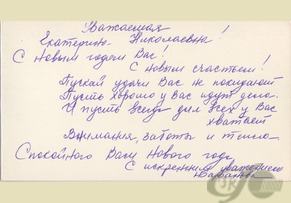 Уважаемая
Екатерина Николаевна!
С Новым годом Вас!
С новым счастьем!
Пускай удачи Вас не покидают
Пусть хорошо у Вас идут дела.
И пусть всегда для всех у Вас
хватает
Внимания, заботы и тепла
Спокойного Вам Нового года
С искренним уважением